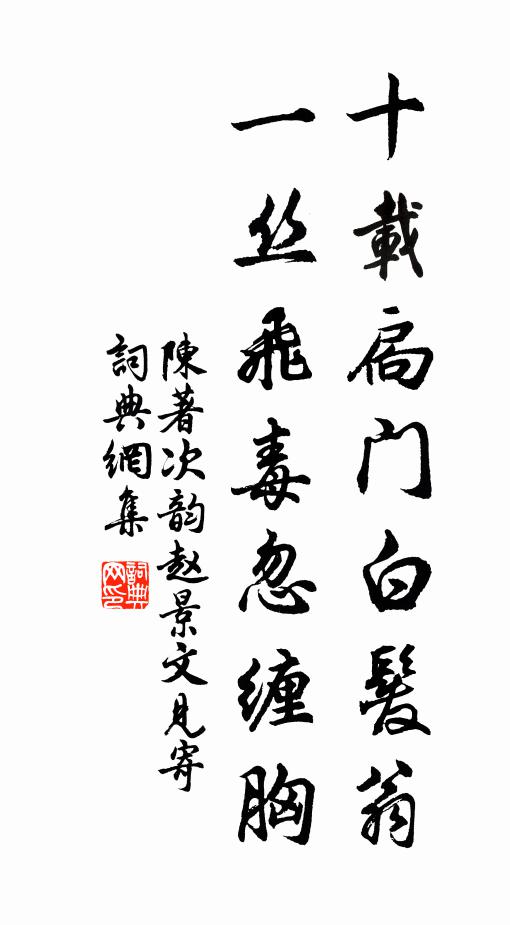 十載扃門白髮翁
一丝飛毒忽纏胸
陳著次韵赵景文見寄
詞典網集
詞典网印